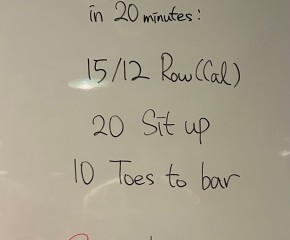 in 20 minutes:
15/12 Row(Cal)
20 Sit up
10 Toes to bar